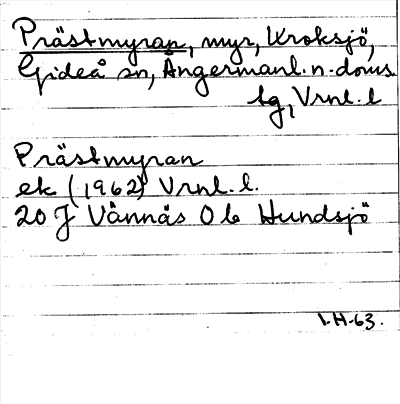 Prästmyran, myr, Kroksjö,
Gideå sn, Ångermanl. n. doms.
tg, Vrnl. l
Prästmyran
ek (1962) Vrnl. l.
20 J Vännäs 0 b Hundsjö
I.H-63.